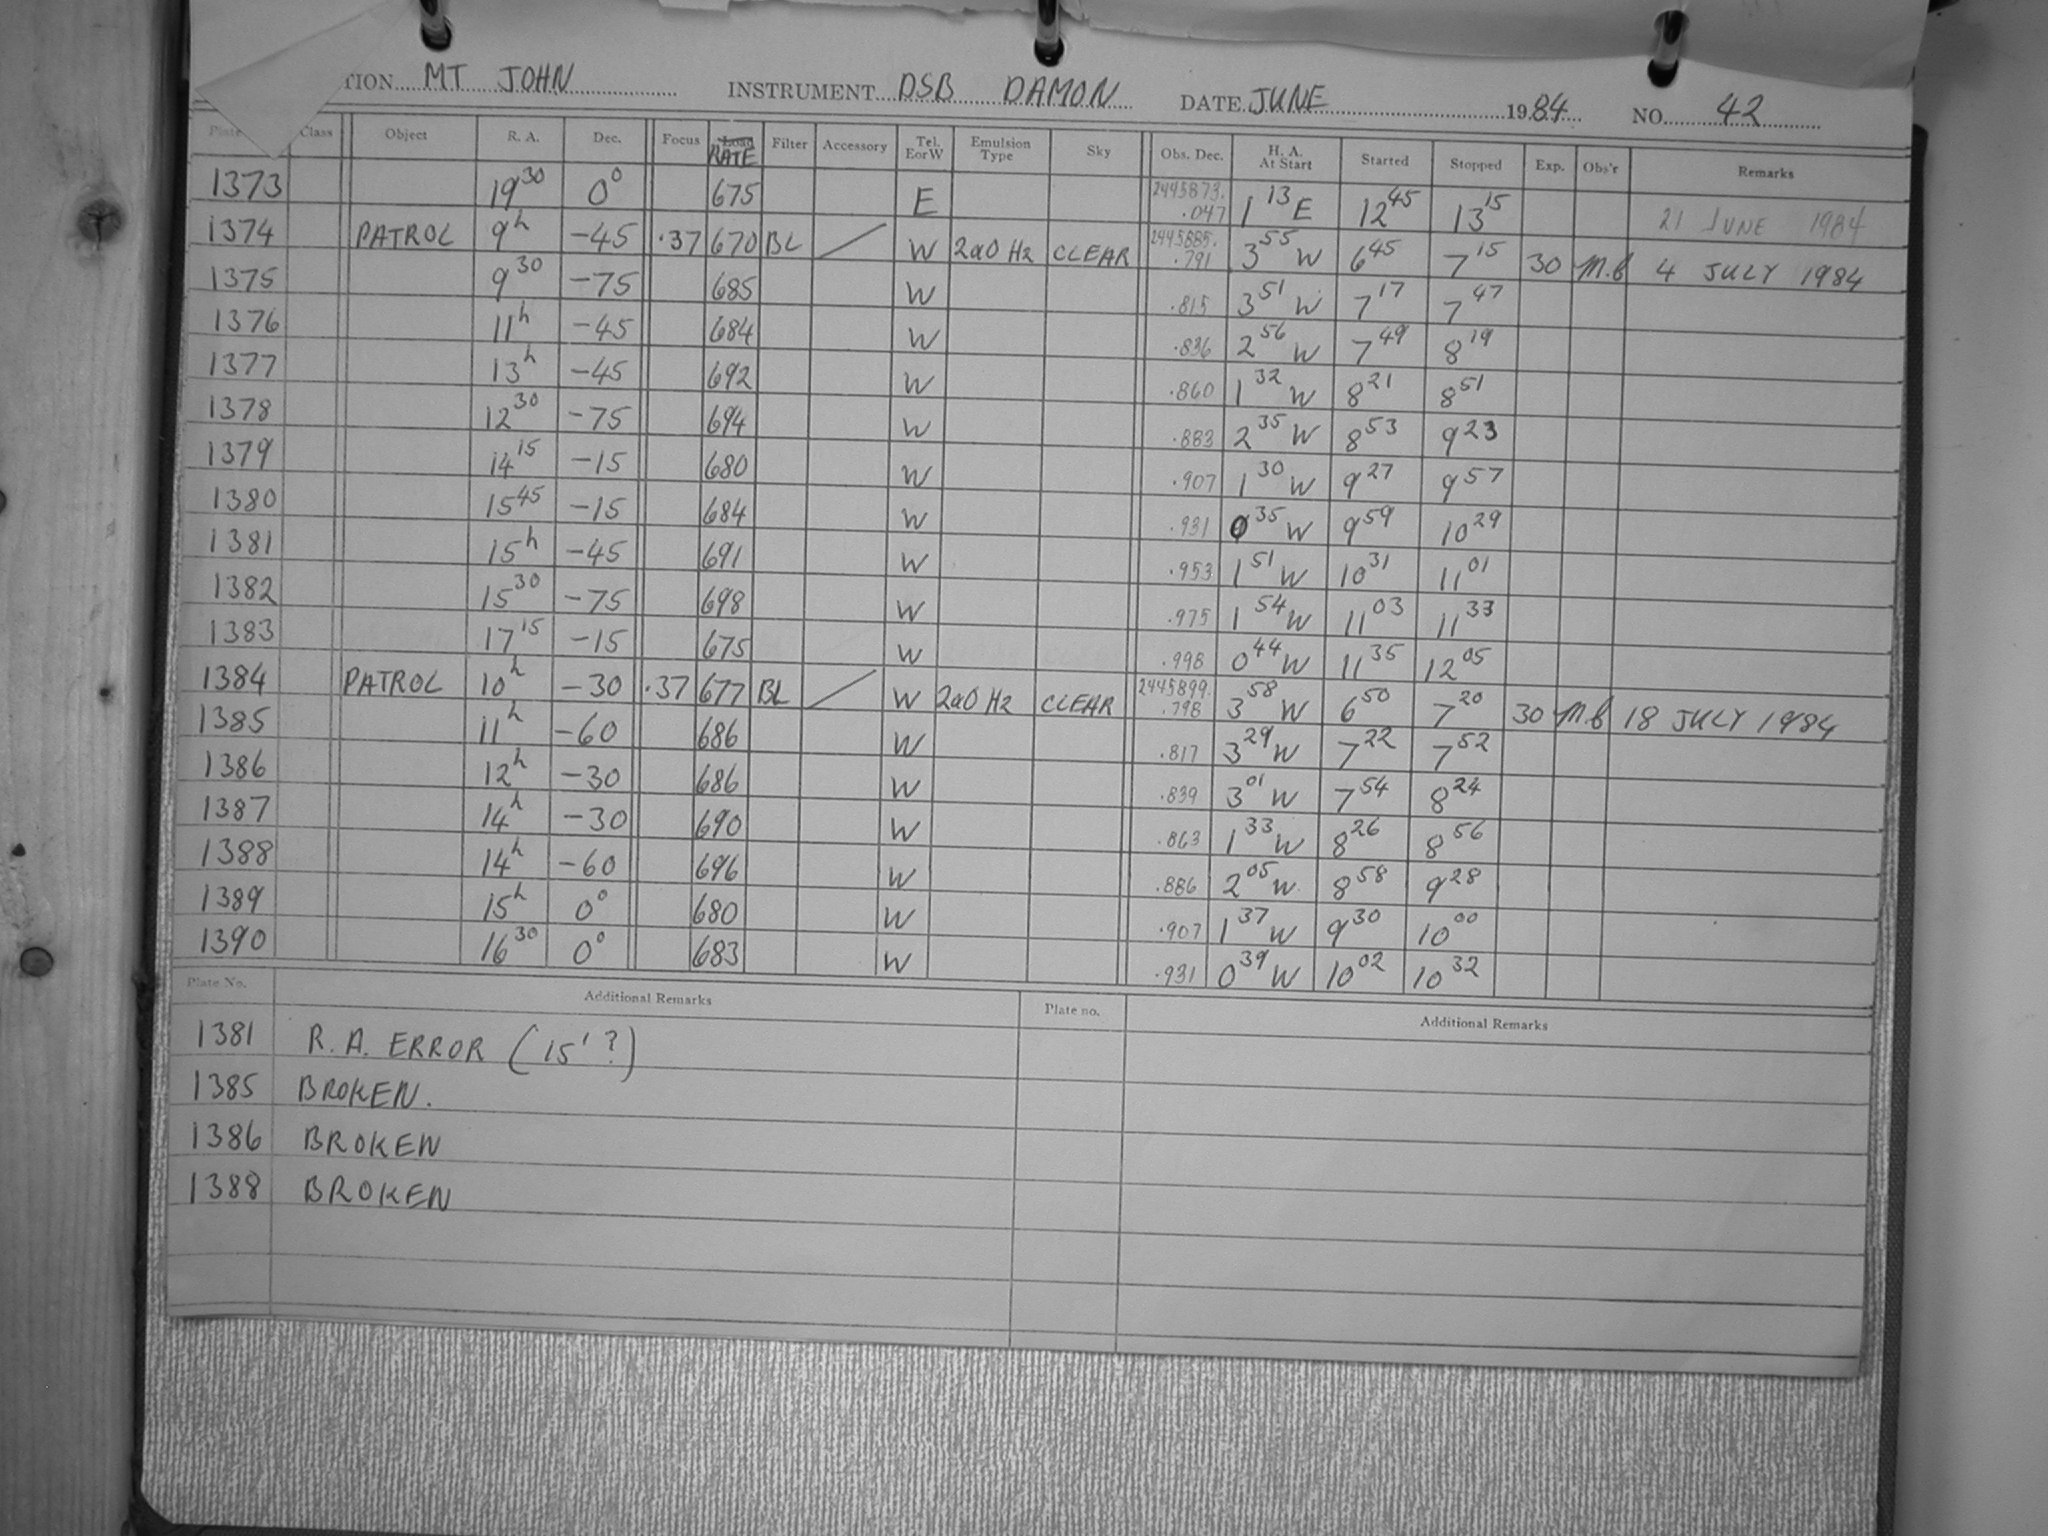 TION MT JOHN INSTRUMENT DSB DAMON DATE JUNE 1984 NO. 42
Plate Class Object R. A. Dec. Focus Load RATE Filter Accessory Tel. E or W Emulsion Type Sky Obs. Dec. H. A. At Start Started Stopped Exp. Obs'r Remarks
1373 19 30 0° 675 E 2445873. .047 1 13 E 12 45 13 15 21 JUNE 1984
1374 PATROL 9h -45 .37 670 BL / W 2aO Hz CLEAR 2445885. .791 3 55 W 6 45 7 15 30 M.B 4 JULY 1984
1375 9 30 -75 685 W .815 3 51 W 7 17 7 47
1376 11h -45 684 W .836 2 56 W 7 49 8 19
1377 13h -45 692 W .860 1 32 W 8 21 8 51
1378 12 30 -75 694 W .883 2 35 W 8 53 9 23
1379 14 15 -15 680 W .907 1 30 W 9 27 9 57
1380 15 45 -15 684 W .931 0 35 W 9 59 10 29
1381 15h -45 691 W .953 1 51 W 10 31 11 01
1382 15 30 -75 698 W .975 1 54 W 11 03 11 33
1383 17 15 -15 675 W .998 0 44 W 11 35 12 05
1384 PATROL 10h -30 .37 677 BL / W 2aO Hz CLEAR 2445899. .798 3 58 W 6 50 7 20 30 M.B 18 JULY 1984
1385 11h -60 686 W .817 3 29 W 7 22 7 52
1386 12h -30 686 W .839 3 01 W 7 54 8 24
1387 14h -30 690 W .863 1 33 W 8 26 8 56
1388 14h -60 696 W .886 2 05 W. 8 58 9 28
1389 15h 0° 680 W .907 1 37 W 9 30 10 00
1390 16 30 0° 683 W .931 0 39 W 10 02 10 32
Plate No. Additional Remarks Plate no. Additional Remarks
1381 R.A. ERROR (15' ?)
1385 BROKEN.
1386 BROKEN
1388 BROKEN